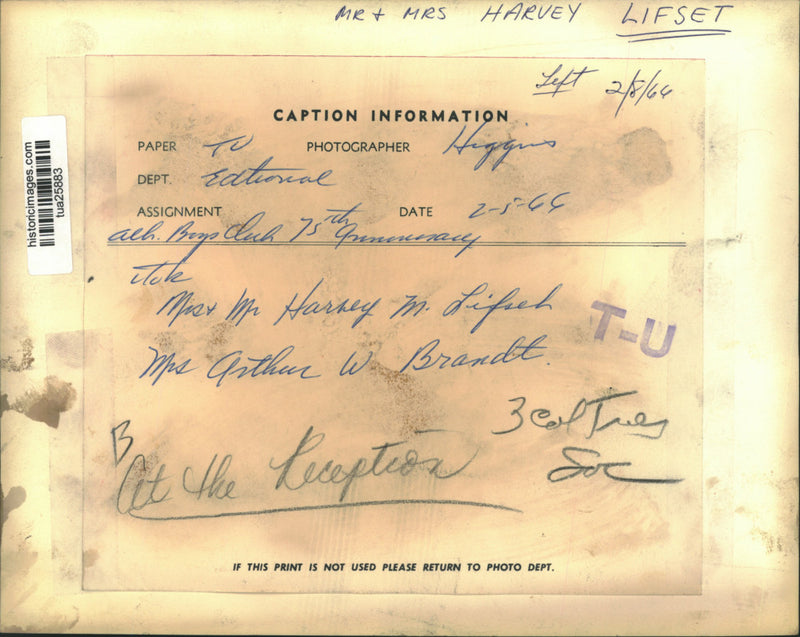 MR + MRS HARVEY LIFSET
Left 2/8/66
CAPTION INFORMATION
PAPER TU PHOTOGRAPHER Higgins
DEPT. Edtional
ASSIGNMENT DATE 2-5-66
Alb. Boys Club 75th Anniversary
Mrs + Mr Harvey M. Lifseh
Mrs Arthur W Brandt.
T-U
3 Col Tues
Soc
B
At the Reception
IF THIS PRINT IS NOT USED PLEASE RETURN TO PHOTO DEPT.
historicimages.com
tua25883